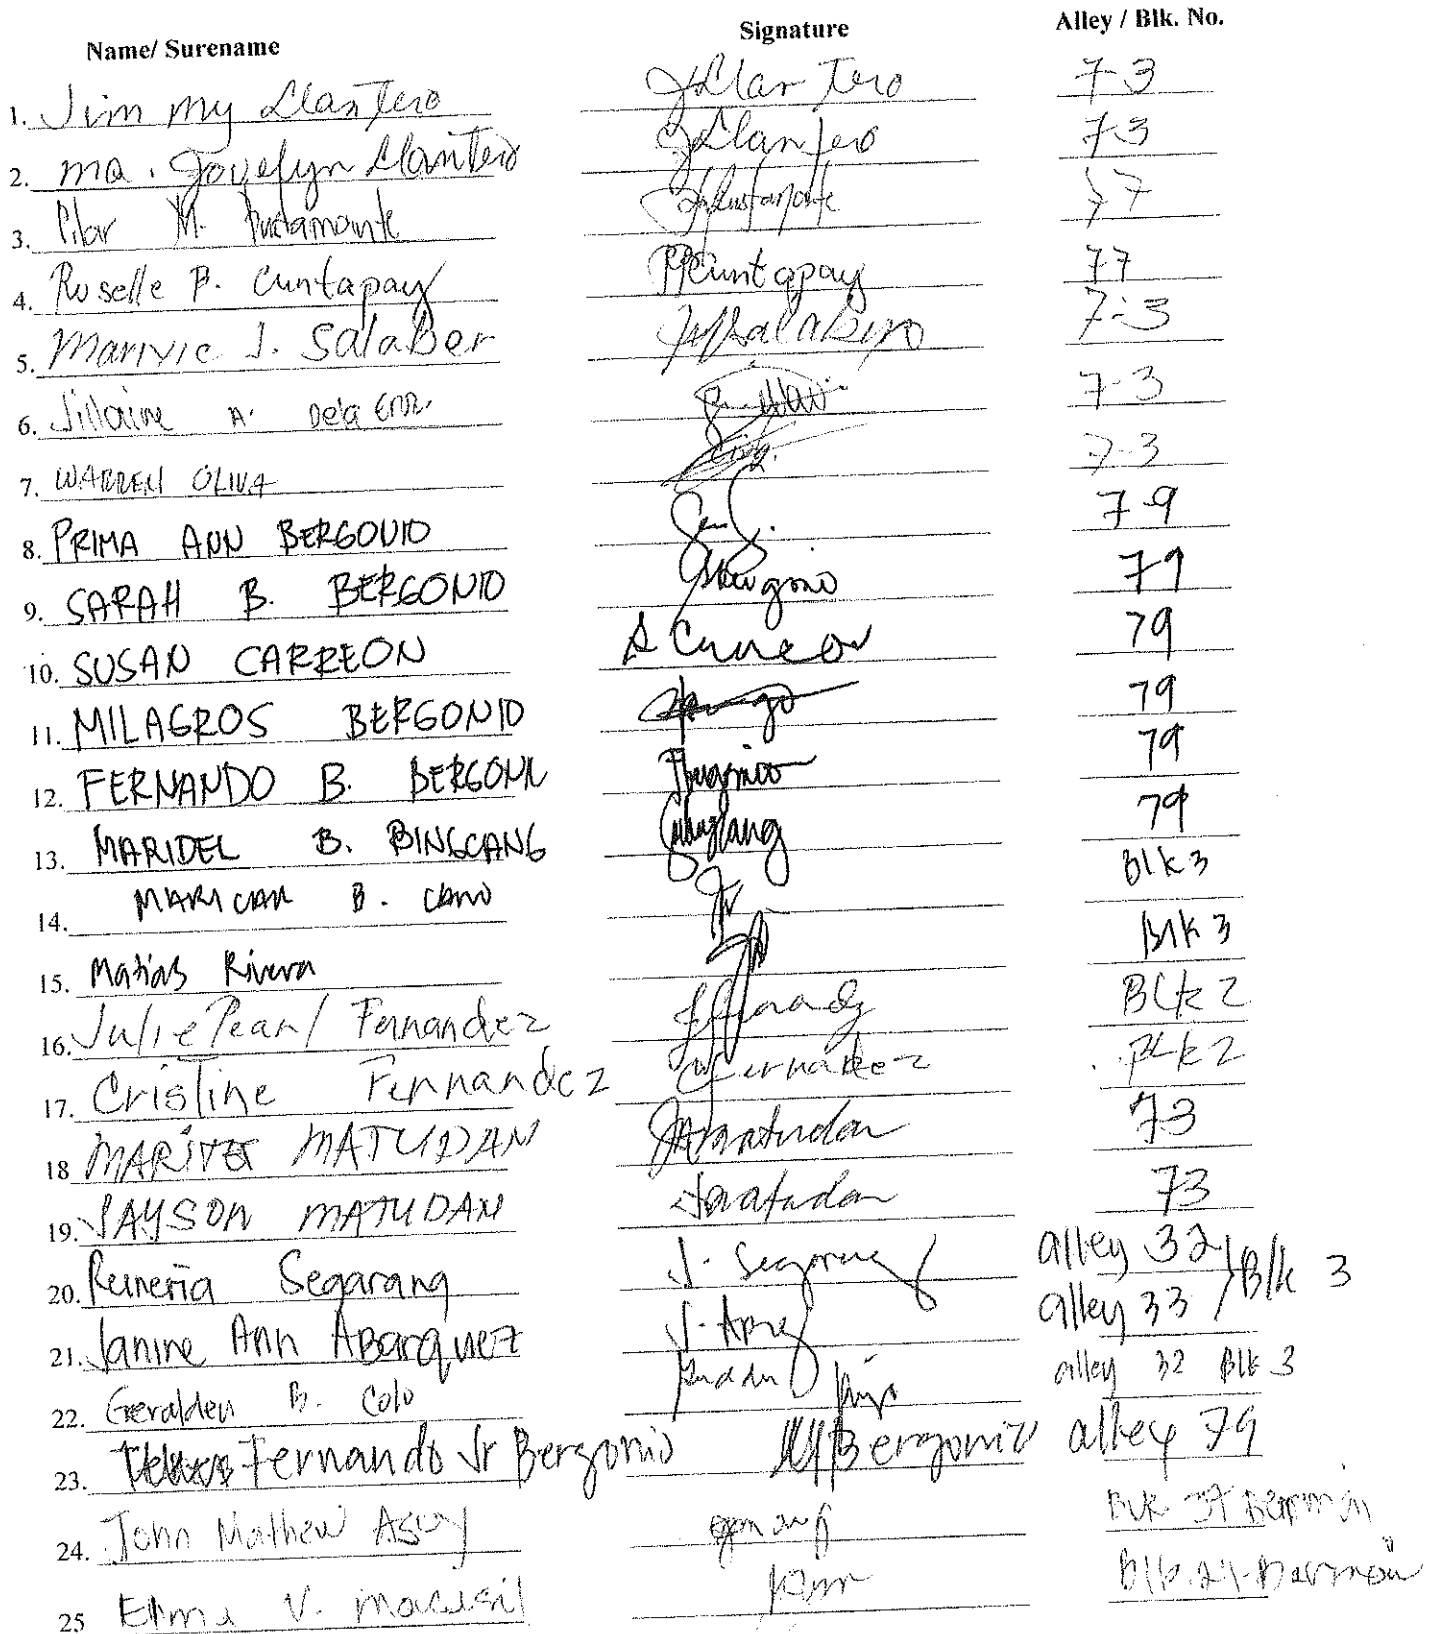 Name/ Surename Signature Alley / Blk. No.
1. Jimmy Llantero JLlantero 7-3
2. Ma. Jovelyn Llantero JLlantero 7-3
3. Pilar M. Bustamante 77
4. Roselle P. Cuntapay RPCuntapay 77
5. Marivic J. Salaber 7-3
6. Jillaine A. Dela Cruz 7-3
7. WARREN OLIVA 7-3
8. PRIMA ANN BERGONIO 7-9
9. SARAH B. BERGONIO 79
10. SUSAN CARREON S Carreon 79
11. MILAGROS BERGONIO 79
12. FERNANDO B. BERGONI 79
13. MARIDEL B. BINGCANG 79
14. MARICAR B. CANO Blk 3
15. Matias Rivera Blk 3
16. Julie Pearl Fernandez Blk 2
17. Cristine Fernandez CFernandez Blk 2
18 MATUDAN 73
19. JAYSON MATUDAN JMatudan 73
20. Segarang J. Segarang alley 32 Blk 3
21. Janine Ann Abarquez alley 33
22. Geralden B. Colo alley 32 Blk 3
23. Fernando Jr Bergonio Bergonio alley 79
24. John Mathew Blk
25 V. Blk.